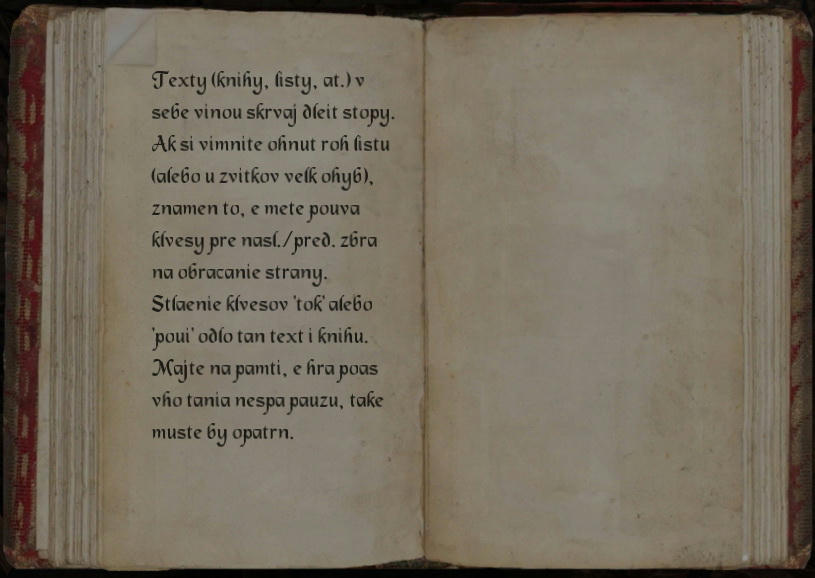 Texty (knihy, listy, at.) v
sebe vinou skrvaj dleit stopy.
Ak si vimnite ohnut roh listu
(alebo u zvitkov velk ohyb),
znamen to, e mete pouva
klvesy pre nasl./pred. zbra
na obracanie strany.
Stlaenie klvesov 'tok' alebo
'poui' odlo tan text i knihu.
Majte na pamti, e hra poas
vho tania nespa pauzu, take
muste by opatrn.